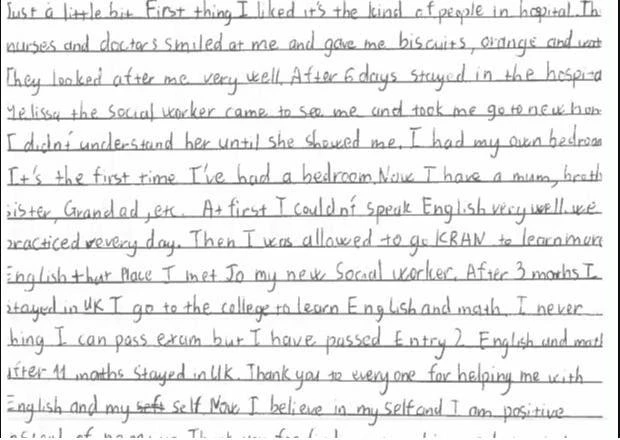 Just a little bit. First thing I liked it's the kind of people in hospital. Th
nurses and doctors smiled at me and gave me biscuits, orange and wat
They looked after me very well. After 6 days stayed in the hospita
Melissa the social worker came to see me and took me go to new hom
I didn't understand her until she showed me. I had my own bedroom
It's the first time I've had a bedroom. Now I have a mum, broth
sister, Grandad, etc. At first I couldn't speak English very well. we
practiced every day. Then I was allowed to go KRAN to learn more
English that Place I met Jo my new Social worker. After 3 months I
stayed in UK I go to the college to learn English and math. I never
thing I can pass exam but I have passed Entry 2 English and math
after 11 months stayed in UK. Thank you to everyone for helping me with
English and my self. Now I believe in my self and I am positive